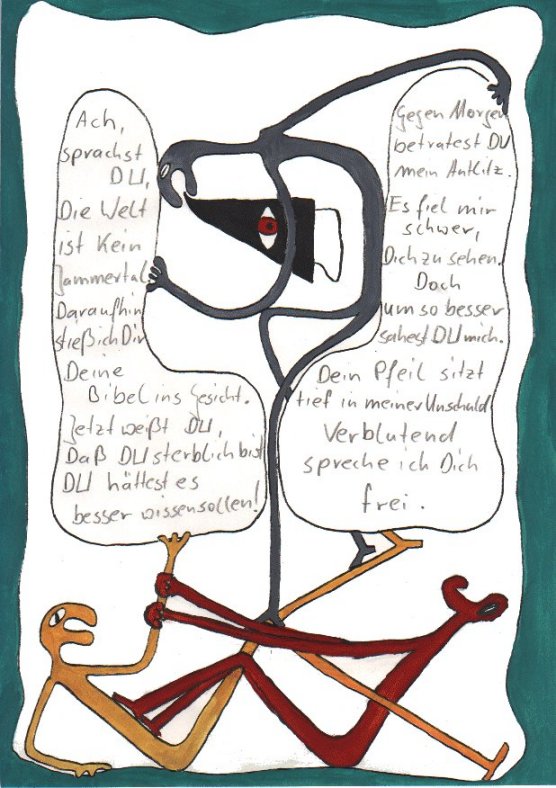 Ach,
sprachst
DU,
Die Welt
ist kein
Jammertal
Daraufhin
stieß ich Dir
Deine
Bibel ins Gesicht.
Jetzt weißt DU,
Daß DU sterblich bist
DU hättest es
besser wissen sollen!
Gegen Morgen
betratest DU
mein Antlitz.
Es fiel mir
schwer,
Dich zu sehen.
Doch
um so besser
sahest DU mich.
Dein Pfeil sitzt
tief in meiner Unschuld
Verblutend
spreche ich Dich
frei.